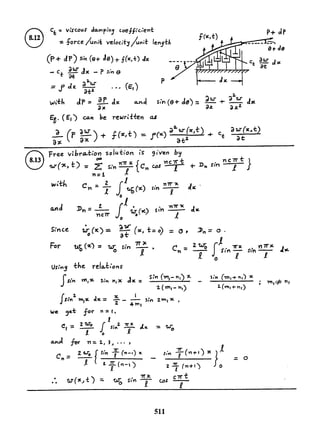 8.12
C_t = viscous damping coefficient
= force / unit velocity / unit length
(P + dP) sin (θ + dθ) + f(x,t) dx
- c_t ∂w/∂t dx - P sin θ
= ρ dx ∂²w/∂t² ... (E₁)
f(x,t)
P + dP
θ + dθ
θ
c_t ∂w/∂t dx
P
dx
with dP = ∂P/∂x dx and sin(θ + dθ) = ∂w/∂x + ∂²w/∂x² dx
Eq. (E₁) can be rewritten as
∂/∂x (P ∂w/∂x) + f(x,t) = ρ(x) ∂²w(x,t)/∂t² + c_t ∂w(x,t)/∂t
8.13
Free vibration solution is given by
w(x,t) = Σ_{n=1} sin nπx/l { C_n cos ncπt/l + D_n sin ncπt/l }
with C_n = 2/l ∫₀^l w₀(x) sin nπx/l dx
and D_n = 2/(ncπ) ∫₀^l ẇ₀(x) sin nπx/l dx
Since ẇ₀(x) = ∂w/∂t (x, t=0) = 0, D_n = 0.
For w₀(x) = w₀ sin πx/l, C_n = 2w₀/l ∫₀^l sin πx/l sin nπx/l dx
Using the relations
∫ sin m₁x sin n₁x dx = sin (m₁-n₁)x / 2(m₁-n₁) - sin (m₁+n₁)x / 2(m₁+n₁) ; m₁ ≠ n₁
∫ sin² m₁x dx = x/2 - 1/4m₁ sin 2m₁x,
we get for n = 1,
C₁ = 2w₀/l ∫₀^l sin² πx/l dx = w₀
and for n = 2, 3, ...,
C_n = 2w₀/l { sin π/l (n-1)x / 2 π/l (n-1) - sin π/l (n+1)x / 2 π/l (n+1) }₀^l = 0
∴ w(x,t) = w₀ sin πx/l cos cπt/l
511